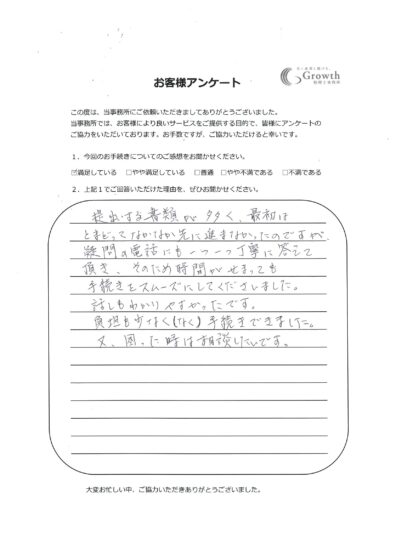 Growth
お客様アンケート
この度は、当事務所にご依頼いただきましてありがとうございました。
当事務所では、お客様により良いサービスをご提供する目的で、皆様にアンケートの
ご協力をいただいております。お手数ですが、ご協力いただけると幸いです。
１、今回のお手続きについてのご感想をお聞かせください。
☑満足している　□やや満足している　□普通　□やや不満である　□不満である
２、上記１でご回答いただけた理由を、ぜひお聞かせください。
提出する書類が多く、最初は
とまどってなかなか先に進まなかったのですが、
疑問の電話にも一つ一つ丁寧に答えて
頂き、そのため時間がせまっても
手続きをスムーズにしてくださいました。
話しもわかりやすかったです。
負担も少なく(なく)手続きできました。
又、困った時は相談したいです。
大変お忙しい中、ご協力いただきありがとうございました。